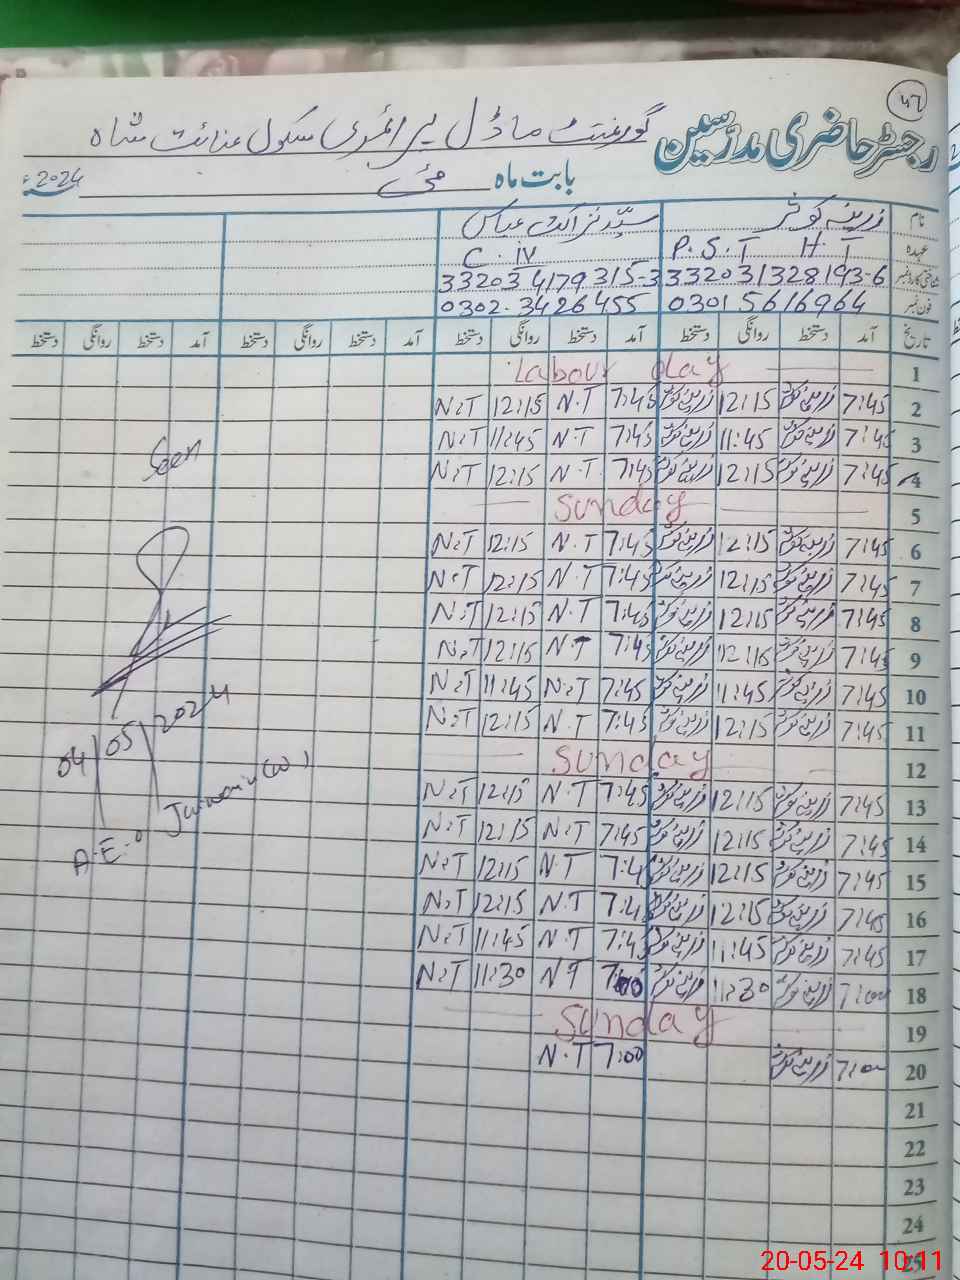 ۴۶
رجسٹر حاضری مدرسین گورنمنٹ ماڈل پرائمری سکول عنائت شاہ
بابت ماہ مئی 2024ء
نام زرینہ کوثر سیدنزاکت عباس
عہدہ P.S.T H.T C.IV
شناختی کارڈ نمبر 332031328193-6 3320341793 15-3
فون نمبر 0301 5616964 0302.3426455
تاریخ آمد دستخط روانگی دستخط آمد دستخط روانگی دستخط آمد دستخط روانگی دستخط آمد دستخط روانگی دستخط
1 Labour Day
2 7:45 زرینہ کوثر 12:15 زرینہ کوثر 7:45 N.T 12:15 N.T
3 7:45 زرینہ کوثر 11:45 زرینہ کوثر 7:45 N.T 11:45 N.T
4 7:45 زرینہ کوثر 12:15 زرینہ کوثر 7:45 N.T 12:15 N.T
5 Sunday
6 7:45 زرینہ کوثر 12:15 زرینہ کوثر 7:45 N.T 12:15 N.T
7 7:45 زرینہ کوثر 12:15 زرینہ کوثر 7:45 N.T 12:15 N.T
8 7:45 زرینہ کوثر 12:15 زرینہ کوثر 7:45 N.T 12:15 N.T
9 7:45 زرینہ کوثر 12:15 زرینہ کوثر 7:45 N.T 12:15 N.T
10 7:45 زرینہ کوثر 11:45 زرینہ کوثر 7:45 N.T 11:45 N.T
11 7:45 زرینہ کوثر 12:15 زرینہ کوثر 7:45 N.T 12:15 N.T
12 Sunday
13 7:45 زرینہ کوثر 12:15 زرینہ کوثر 7:45 N.T 12:15 N.T
14 7:45 زرینہ کوثر 12:15 زرینہ کوثر 7:45 N.T 12:15 N.T
15 7:45 زرینہ کوثر 12:15 زرینہ کوثر 7:4 N.T 12:15 N.T
16 7:45 زرینہ کوثر 12:15 زرینہ کوثر 7:4 N.T 12:15 N.T
17 7:45 زرینہ کوثر 11:45 زرینہ کوثر 7:45 N.T 11:45 N.T
18 7:00 زرینہ کوثر 11:30 زرینہ کوثر 7:00 N.T 11:30 N.T
19 Sunday
20 7:00 زرینہ کوثر 7:00 N.T
21
22
23
24
25
Seen
04/05/2024
A.E.O (W)
20-05-24 10:11